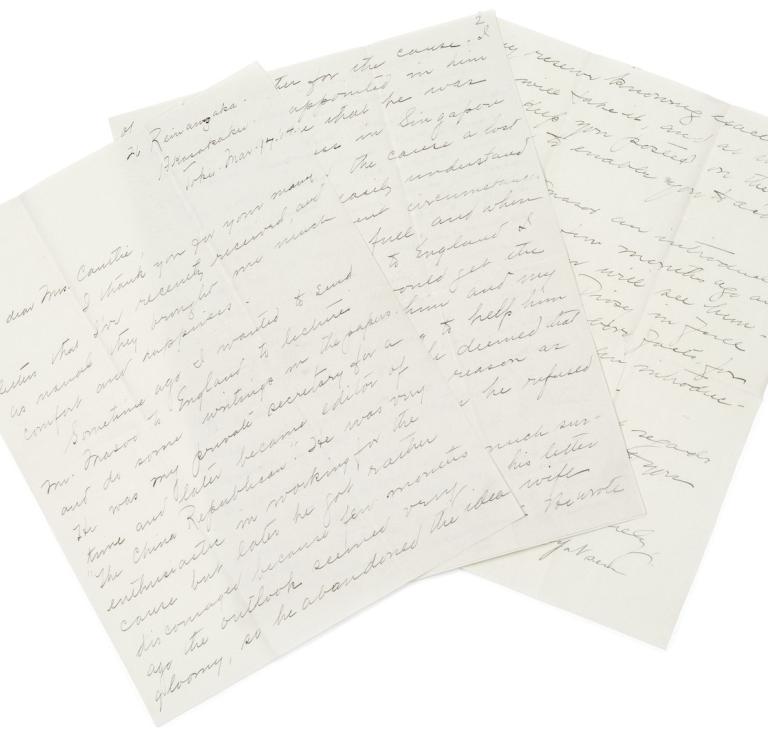 at
26 Reinanzaka.
Akasakaku.
Tokio. Mar. 14.
dear Mrs. Cantlie,
I thank you for your many
letters that I've recently received, and
as usual they brought me much
comfort and happiness.
Sometime ago I wanted to send
Mr. Masoo to England to lecture
and do some writings in the papers.
He was my private secretary for a
time and later became editor of
"The China Republican." He was very
enthusiastic in working for the
cause but later he got rather
discouraged because few months
ago the outlook seemed very
gloomy, so he abandoned the idea
2
ter for the cause. I
appointed in him
e that he was
in Singapore
the cause a lost
easily understand
ent circumstance
full, and when
to England I
ould get the
him and my
to help him
he deemed that
reason as
he refused
much sur-
his letter
wife
He wrote
reserve knowing
will take it, and as
keep you posted on the
to enable you to
Masoo an introduc
months ago
will see him
those in Free
facts for
an introduc-
regards
you